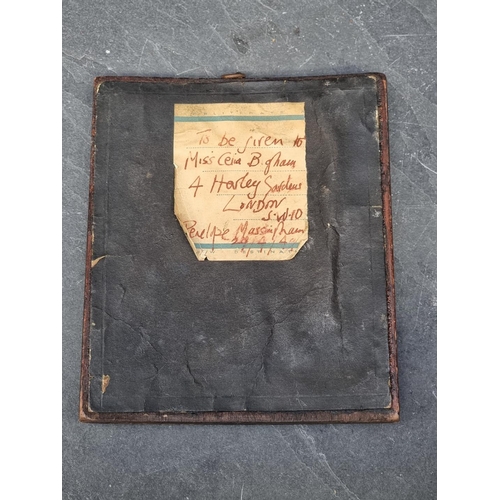 To be given to
Miss Celia B
4 Harley Gardens
LONDON
S.W.10
Penelope Massingham